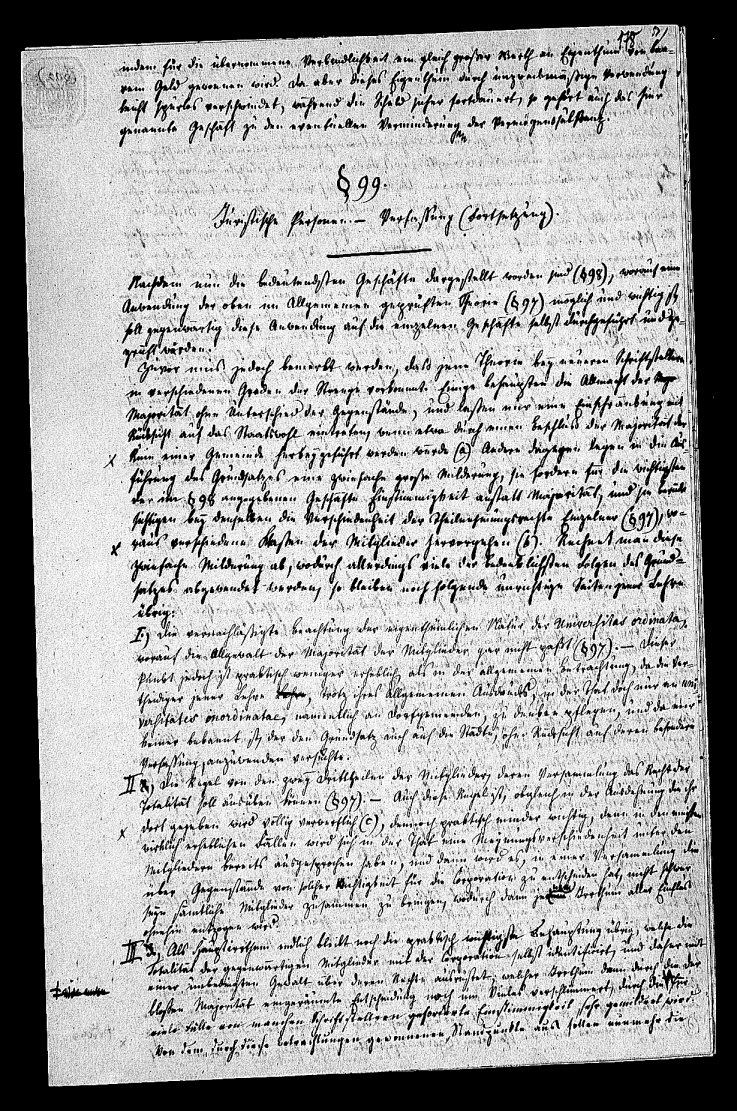 115
indem für die übernommene Verbindlichkeit ein gleich großer Werth an Eigenthum von baa-
rem Geld gewonnen wird. Da aber dieses Eigenthum durch unzweckmäßige Verwendung
leicht spurlos verschwindet, während die Schuld sicher fortdauert, so gehört auch das hier
genannte Geschäft zu den eventuellen Verminderungen der Vermögenssubstanz.
§ 99.
Juristische Personen. — Verfassung (Fortsetzung).
Nachdem nun die bedeutendsten Geschäfte dargestellt worden sind (§ 98), worauf eine
Anwendung der oben im Allgemeinen geprüften Theorie (§ 97) möglich und wichtig ist,
soll gegenwärtig diese Anwendung auf die einzelnen Geschäfte selbst durchgeführt und ge-
prüft werden.
Zuvor muß jedoch bemerkt werden, daß jene Theorie bey neueren Schriftstellern
in verschiedenen Graden der Strenge vorkommt. Einige behaupten die Allmacht der
Majorität ohne Unterschied der Gegenstände, und lassen nur eine Einschränkung mit
Rücksicht auf das Staatswohl eintreten, wenn etwa durch einen Beschluß der Majorität der
Ruin einer Gemeinde herbeygeführt werden würde (a). Andere dagegen legen in die Aus-
führung des Grundsatzes eine zwiefache große Milderung; sie fordern für die wichtigsten
der im § 98 angegebenen Geschäfte Einstimmigkeit anstatt Majorität, und sie berück-
sichtigen bey denselben die Verschiedenheit der Theilnehmungsrechte Einzelner (§ 97), wo-
raus verschiedene Klassen der Mitglieder hervorgehen (b). Rechnet man diese
zwiefache Milderung ab, wodurch allerdings viele der bedenklichsten Folgen des Grund-
satzes abgewendet werden, so bleiben noch folgende unrichtige Seiten jener Lehre
übrig:
I.) Die vernachlässigte Beachtung der eigenthümlichen Natur der Universitas ordinata,
worauf die Allgewalt der Majorität der Mitglieder gar nicht paßt (§ 97). — Dieser
Punkt jedoch ist praktisch weniger erheblich, als in der allgemeinen Betrachtung, da die Ver-
theidiger jener Lehre, trotz ihres allgemeinen Ausdrucks, in der That doch nur an uni-
versitates inordinatae, namentlich an Dorfgemeinden, zu denken pflegen, und da mir
keiner bekannt ist, der den Grundsatz auch auf die Städte, ohne Rücksicht auf deren besondere
Verfassung, anzuwenden versuchte.
II.) Die Regel von den zwey Drittheilen der Mitglieder, deren Versammlung das Recht der
Totalität soll ausüben können (§ 97). — Auch diese Regel ist, obgleich in der Ausdehnung die ihr
dort gegeben wird völlig verwerflich (c), dennoch praktisch minder wichtig, denn in den meisten
wirklich erheblichen Fällen wird sich in der That eine Meynungsverschiedenheit unter den
Mitgliedern bereits ausgesprochen haben, und dann wird es, in einer Versammlung die
über Gegenstände von solcher Wichtigkeit für die Corporation zu entscheiden hat, nicht schwer
seyn sämtliche Mitglieder zusammen zu bringen, wodurch dann jener Irrthum aller Einfluß
ohnehin entzogen wird.
III.) Als Hauptirrthum endlich bleibt noch die praktisch wichtigste Behauptung übrig, welche die
Totalität der gegenwärtigen Mitglieder mit der Corporation selbst identificirt, und daher mit
einer unbedingten Gewalt über deren Rechte ausrüstet; welcher Irrthum dann durch die der
bloßen Majorität eingeräumte Entscheidung noch um Vieles verschlimmert, durch die für
viele Fälle von manchen Schriftstellern geforderte Einstimmigkeit sehr gemildert wird.
Von dem durch diese Betrachtungen gewonnenen Standpunkte aus sollen nunmehr die